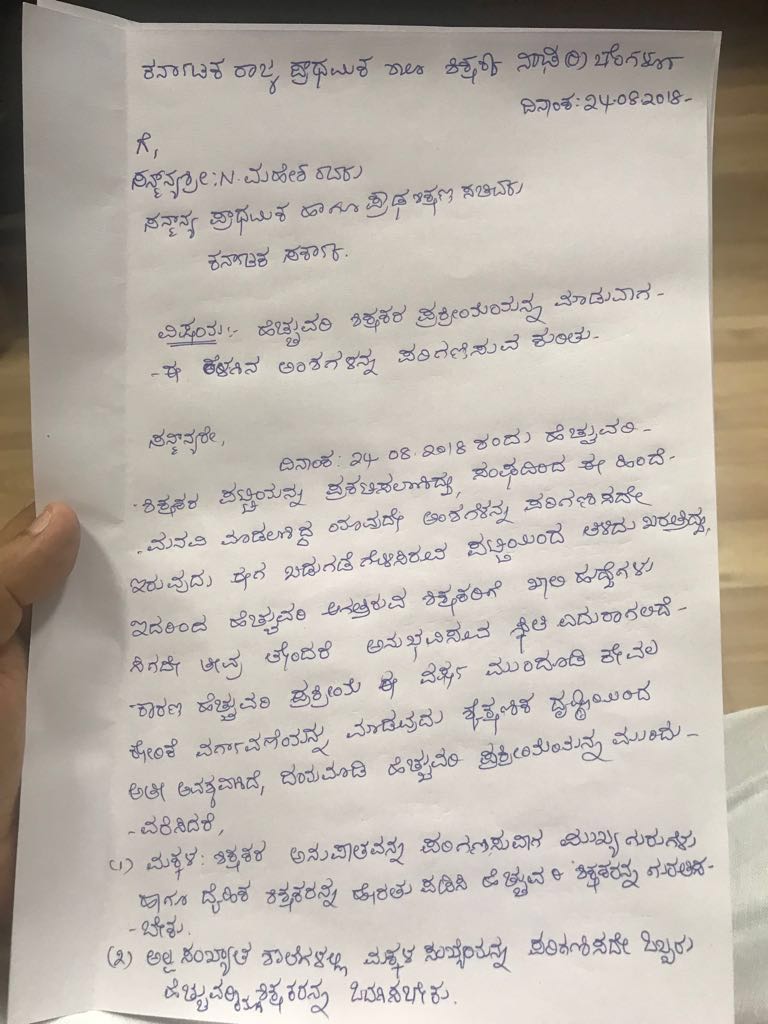 ಕರ್ನಾಟಕ ರಾಜ್ಯ ಪ್ರಾಥಮಿಕ ಶಾಲಾ ಶಿಕ್ಷಕರ ಸಂಘ (ರಿ) ಬೆಂಗಳೂರು
ದಿನಾಂಕ: 24.08.2018-
ಗೆ,
ಸನ್ಮಾನ್ಯಶ್ರೀ: N. ಮಹೇಶ ರವರು
ಸನ್ಮಾನ್ಯ ಪ್ರಾಥಮಿಕ ಹಾಗೂ ಪ್ರೌಢ ಶಿಕ್ಷಣ ಸಚಿವರು
ಕರ್ನಾಟಕ ಸರ್ಕಾರ.
ವಿಷಯ:- ಹೆಚ್ಚುವರಿ ಶಿಕ್ಷಕರ ಪ್ರಕ್ರೀಯೆಯನ್ನು ಮಾಡುವಾಗ-
-ಈ ಕೆಳಗಿನ ಅಂಶಗಳನ್ನು ಪರಿಗಣಿಸುವ ಕುರಿತು-
ಸನ್ಮಾನ್ಯರೇ,
ದಿನಾಂಕ: 24.08.2018 ರಂದು ಹೆಚ್ಚುವರಿ-
-ಶಿಕ್ಷಕರ ಪಟ್ಟಿಯನ್ನು ಪ್ರಕಟಿಸಲಾಗಿದ್ದು, ಸಂಘದಿಂದ ಈ ಹಿಂದೆ-
-ಮನವಿ ಮಾಡಲಾಗಿದ್ದ ಯಾವುದೇ ಅಂಶಗಳನ್ನು ಪರಿಗಣಿಸದೇ
ಇರುವುದು ಈಗ ಬಿಡುಗಡೆಗೊಳಿಸಿರುವ ಪಟ್ಟಿಯಿಂದ ತಿಳಿದು ಬರುತ್ತಿದ್ದು,
ಇದರಿಂದ ಹೆಚ್ಚುವರಿ ಆಗುತ್ತಿರುವ ಶಿಕ್ಷಕರಿಗೆ ಖಾಲಿ ಹುದ್ದೆಗಳು
ಸಿಗದೇ ತೀವ್ರ ತೊಂದರೆ ಅನುಭವಿಸುವ ಸ್ಥಿತಿ ಎದುರಾಗಲಿದೆ-
ಕಾರಣ ಹೆಚ್ಚುವರಿ ಪ್ರಕ್ರೀಯೆ ಈ ವರ್ಷ ಮುಂದೂಡಿ ಕೇವಲ
ಕೋರಿಕೆ ವರ್ಗಾವಣೆಯನ್ನು ಮಾಡುವುದು ಶೈಕ್ಷಣಿಕ ದೃಷ್ಟಿಯಿಂದ
ಅತೀ ಅವಶ್ಯವಾಗಿದೆ, ದಯಮಾಡಿ ಹೆಚ್ಚುವರಿ ಪ್ರಕ್ರೀಯೆಯನ್ನು ಮುಂದು-
-ವರೆಸಿದರೆ,
(1) ಮಕ್ಕಳ: ಶಿಕ್ಷಕರ ಅನುಪಾತವನ್ನು ಪರಿಗಣಿಸುವಾಗ ಮುಖ್ಯ ಗುರುಗಳು
ಹಾಗೂ ದೈಹಿಕ ಶಿಕ್ಷಕರನ್ನು ಹೊರತು ಪಡಿಸಿ ಹೆಚ್ಚುವರಿ ಶಿಕ್ಷಕರನ್ನು ಗುರುತಿಸ-
-ಬೇಕು.
(2) ಅಲ್ಪ ಸಂಖ್ಯಾತ ಶಾಲೆಗಳಲ್ಲಿ ಮಕ್ಕಳ ಸಂಖ್ಯೆಯನ್ನು ಪರಿಗಣಿಸದೇ ಒಬ್ಬರು
ಹೆಚ್ಚುವರಿ ಶಿಕ್ಷಕರನ್ನು ಒದಗಿಸಬೇಕು.